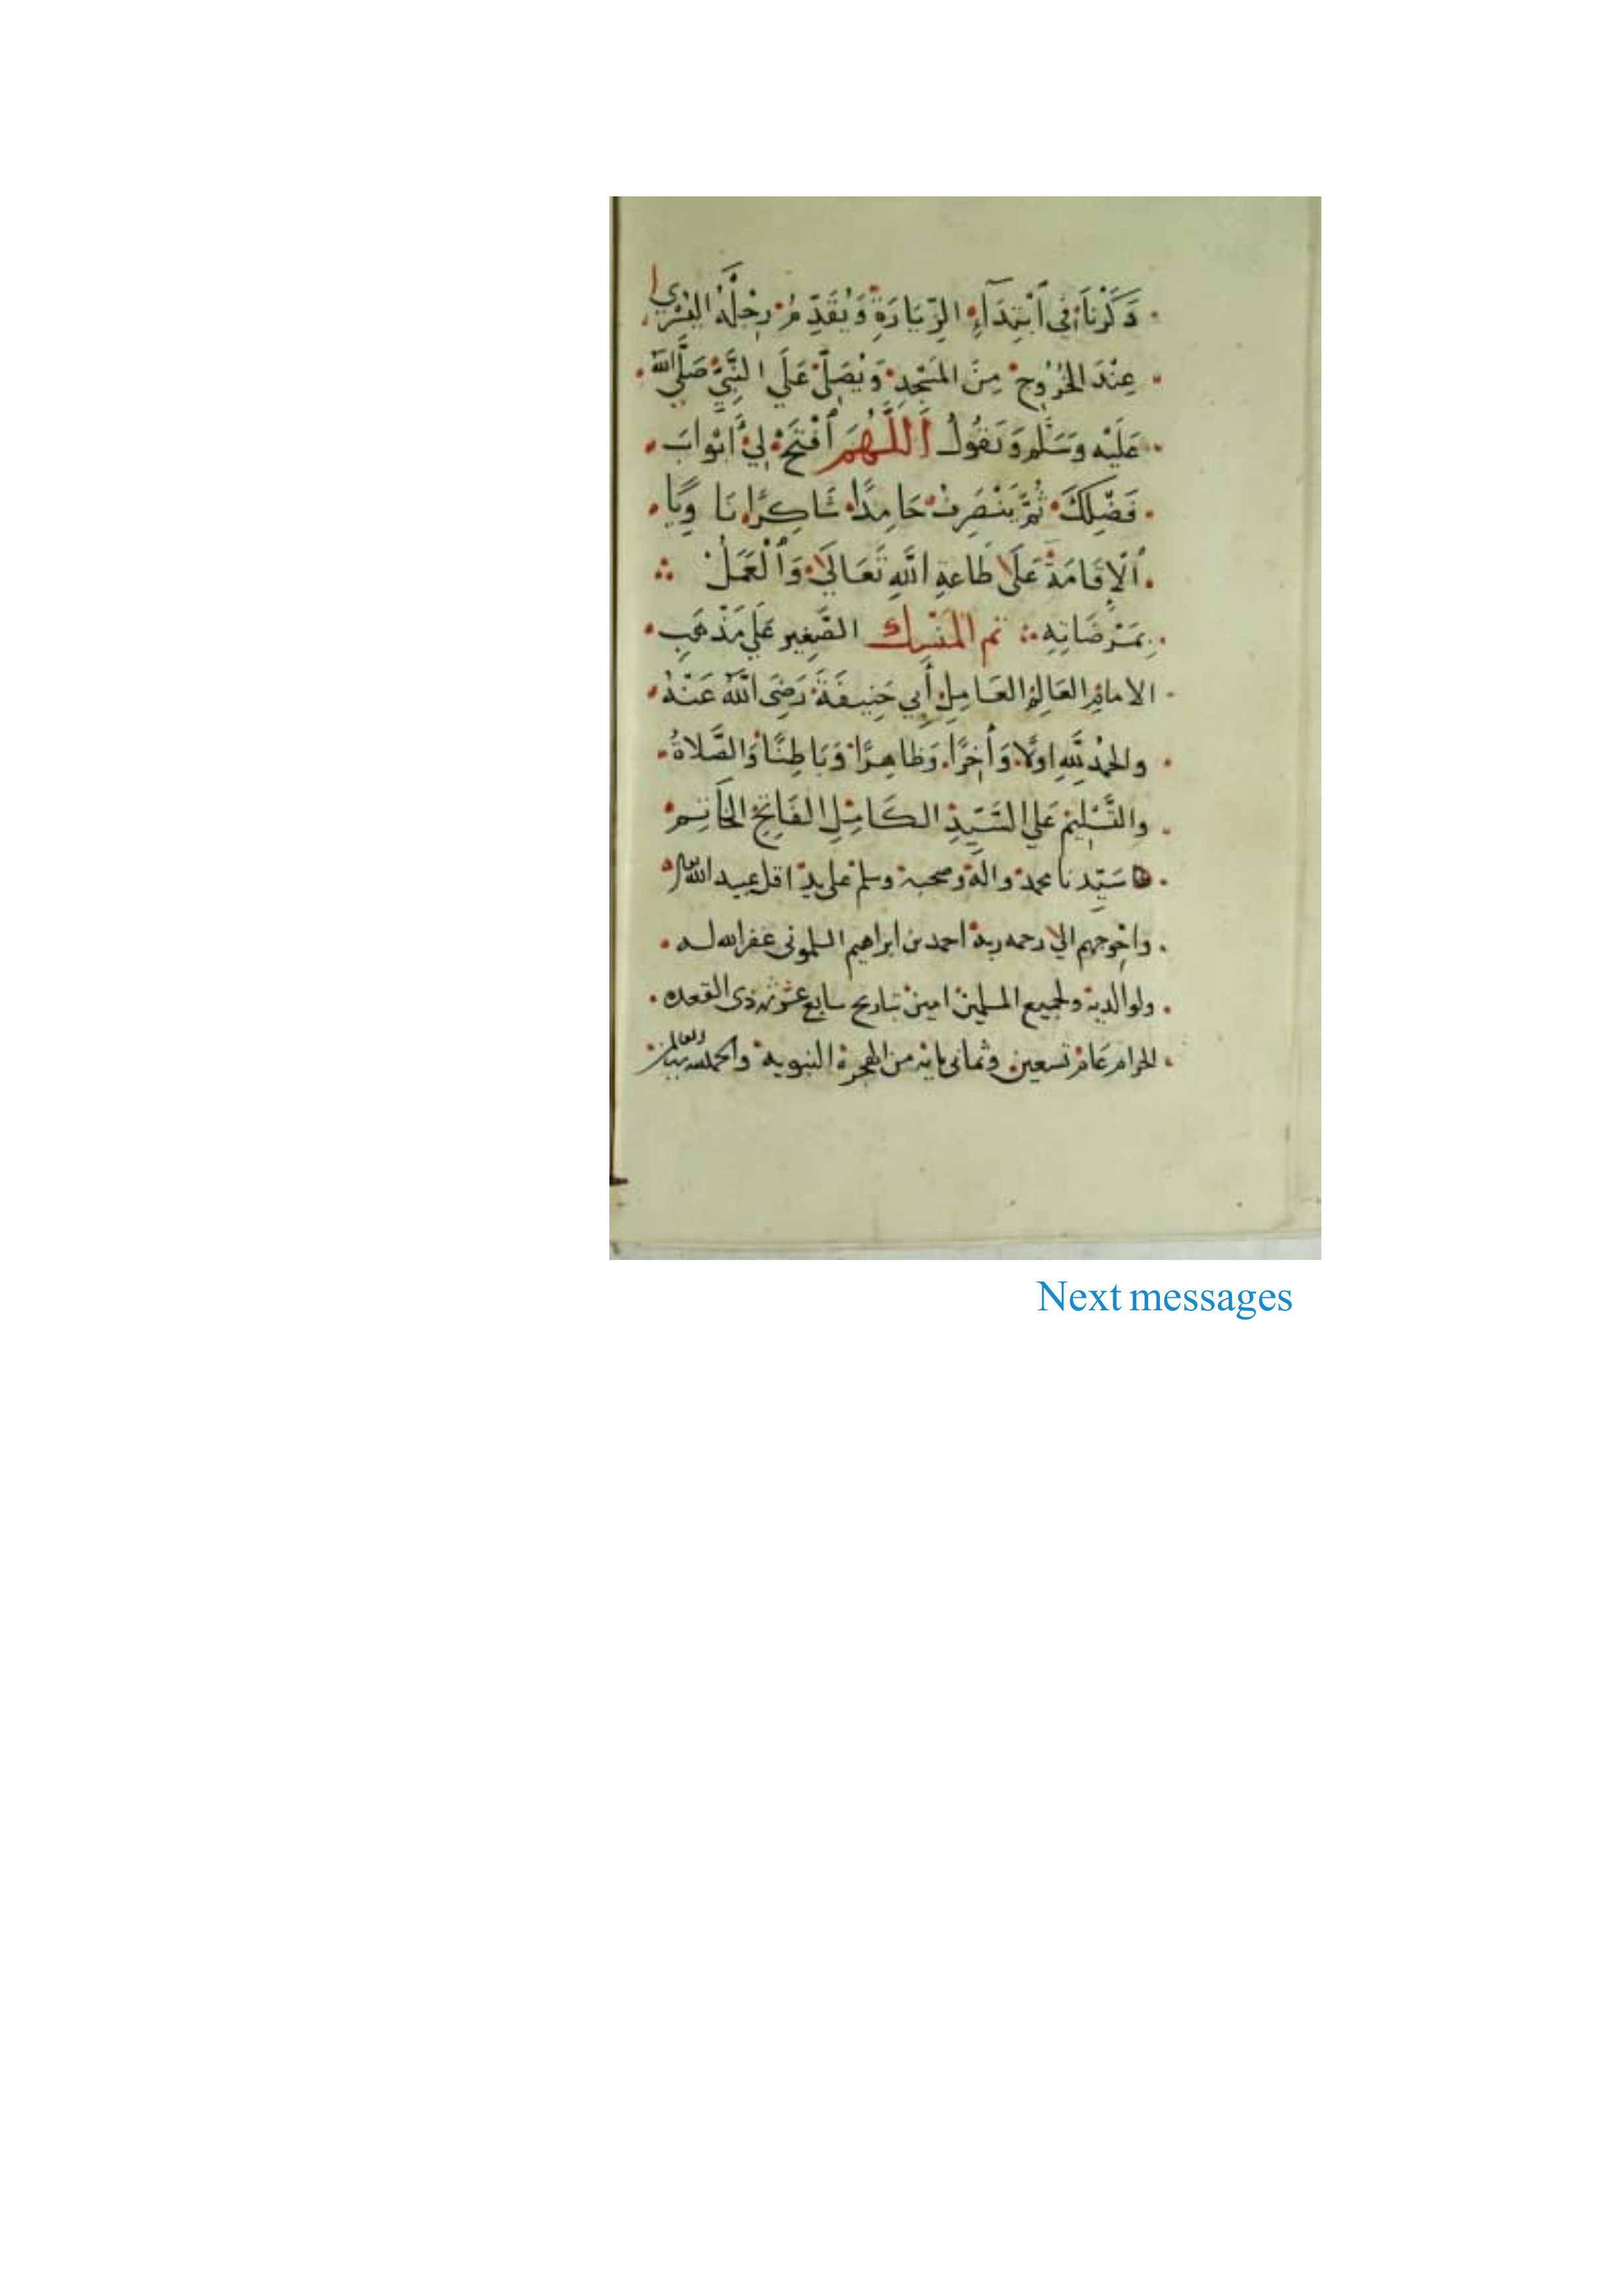 ذَكَرْنَا فِي ٱبْتِدَآءِ الزِّيَارَةِ وَيُقَدِّمُ رِجْلَهُ اليُسْرَي
عِنْدَ الخُرُوجِ مِنَ المَسْجِدِ وَيُصَلِّي عَلَي النَّبِيِّ صَلَّي اللّٰهُ
عَلَيْهِ وَسَلَّم وَيَقُولُ اَللَّهُمَّ ٱفْتَحْ لِي أَبْوَابَ
فَضْلِكَ ثُمَّ يَنْصَرِفُ حَامِدًا شَاكِرًا نَاوِيًا
ٱلْإِقَامَةَ عَلَي طَاعَةِ اللَّهِ تَعَالَي وَٱلْعَمَلْ
بِمَرْضَاتِهِ تم المَنْسِك الصَّغِير عَلَي مَذْهَبِ
الامامِ العَالِمِ العَامِلِ أَبِي حَنِيفَةَ رَضِيَ اللَّهُ عَنْهُ
والحَمْدُ لِلَّهِ اوَّلًا وَأٰخِرًا وَظَاهِرًا وَبَاطِنًا وَالصَّلَاةُ
والتَّسْلِيمُ عَلَي السَّيِّدِ الكَامِلِ الفَاتِحِ الخَاتِمِ
سَيِّدنا محمد واله وصحبه وسلم على يد اقل عبيد الله
واحوجهم الي رحمه ربه احمد بن ابراهيم السلموني غفر الله له
ولوالديه ولجميع المسلمين امين بتاريخ سابع عشر ذى القعده
الحرام عام تسعين وثماني مايه من الهجرة النبويه والحمد لله رب العالمين
Next messages